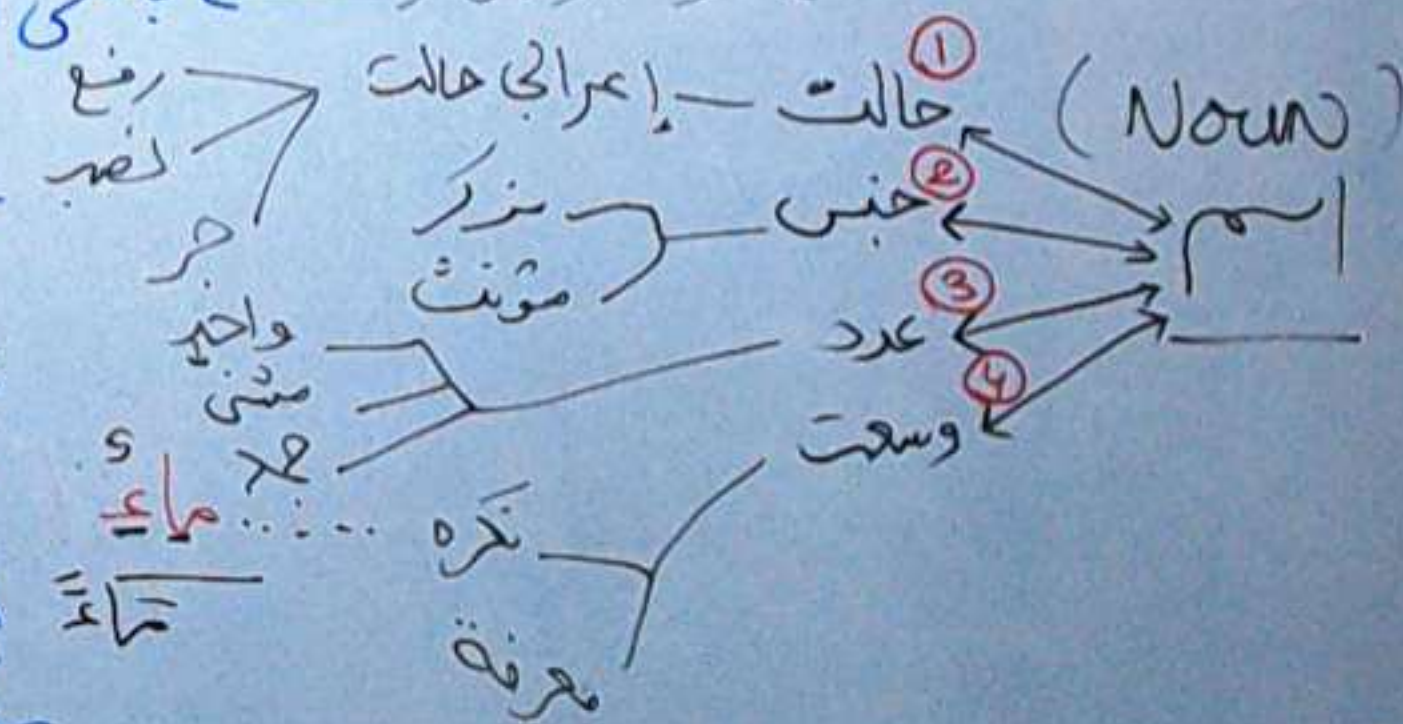 (Noun)
اسم
① حالت — إعرابی حالت
رفع
نصب
جر
② جنس
مذکر
مؤنث
③ عدد
واحد
مثنی
جمع
④ وسعت
نکره
معرفة
ماء
ماءً